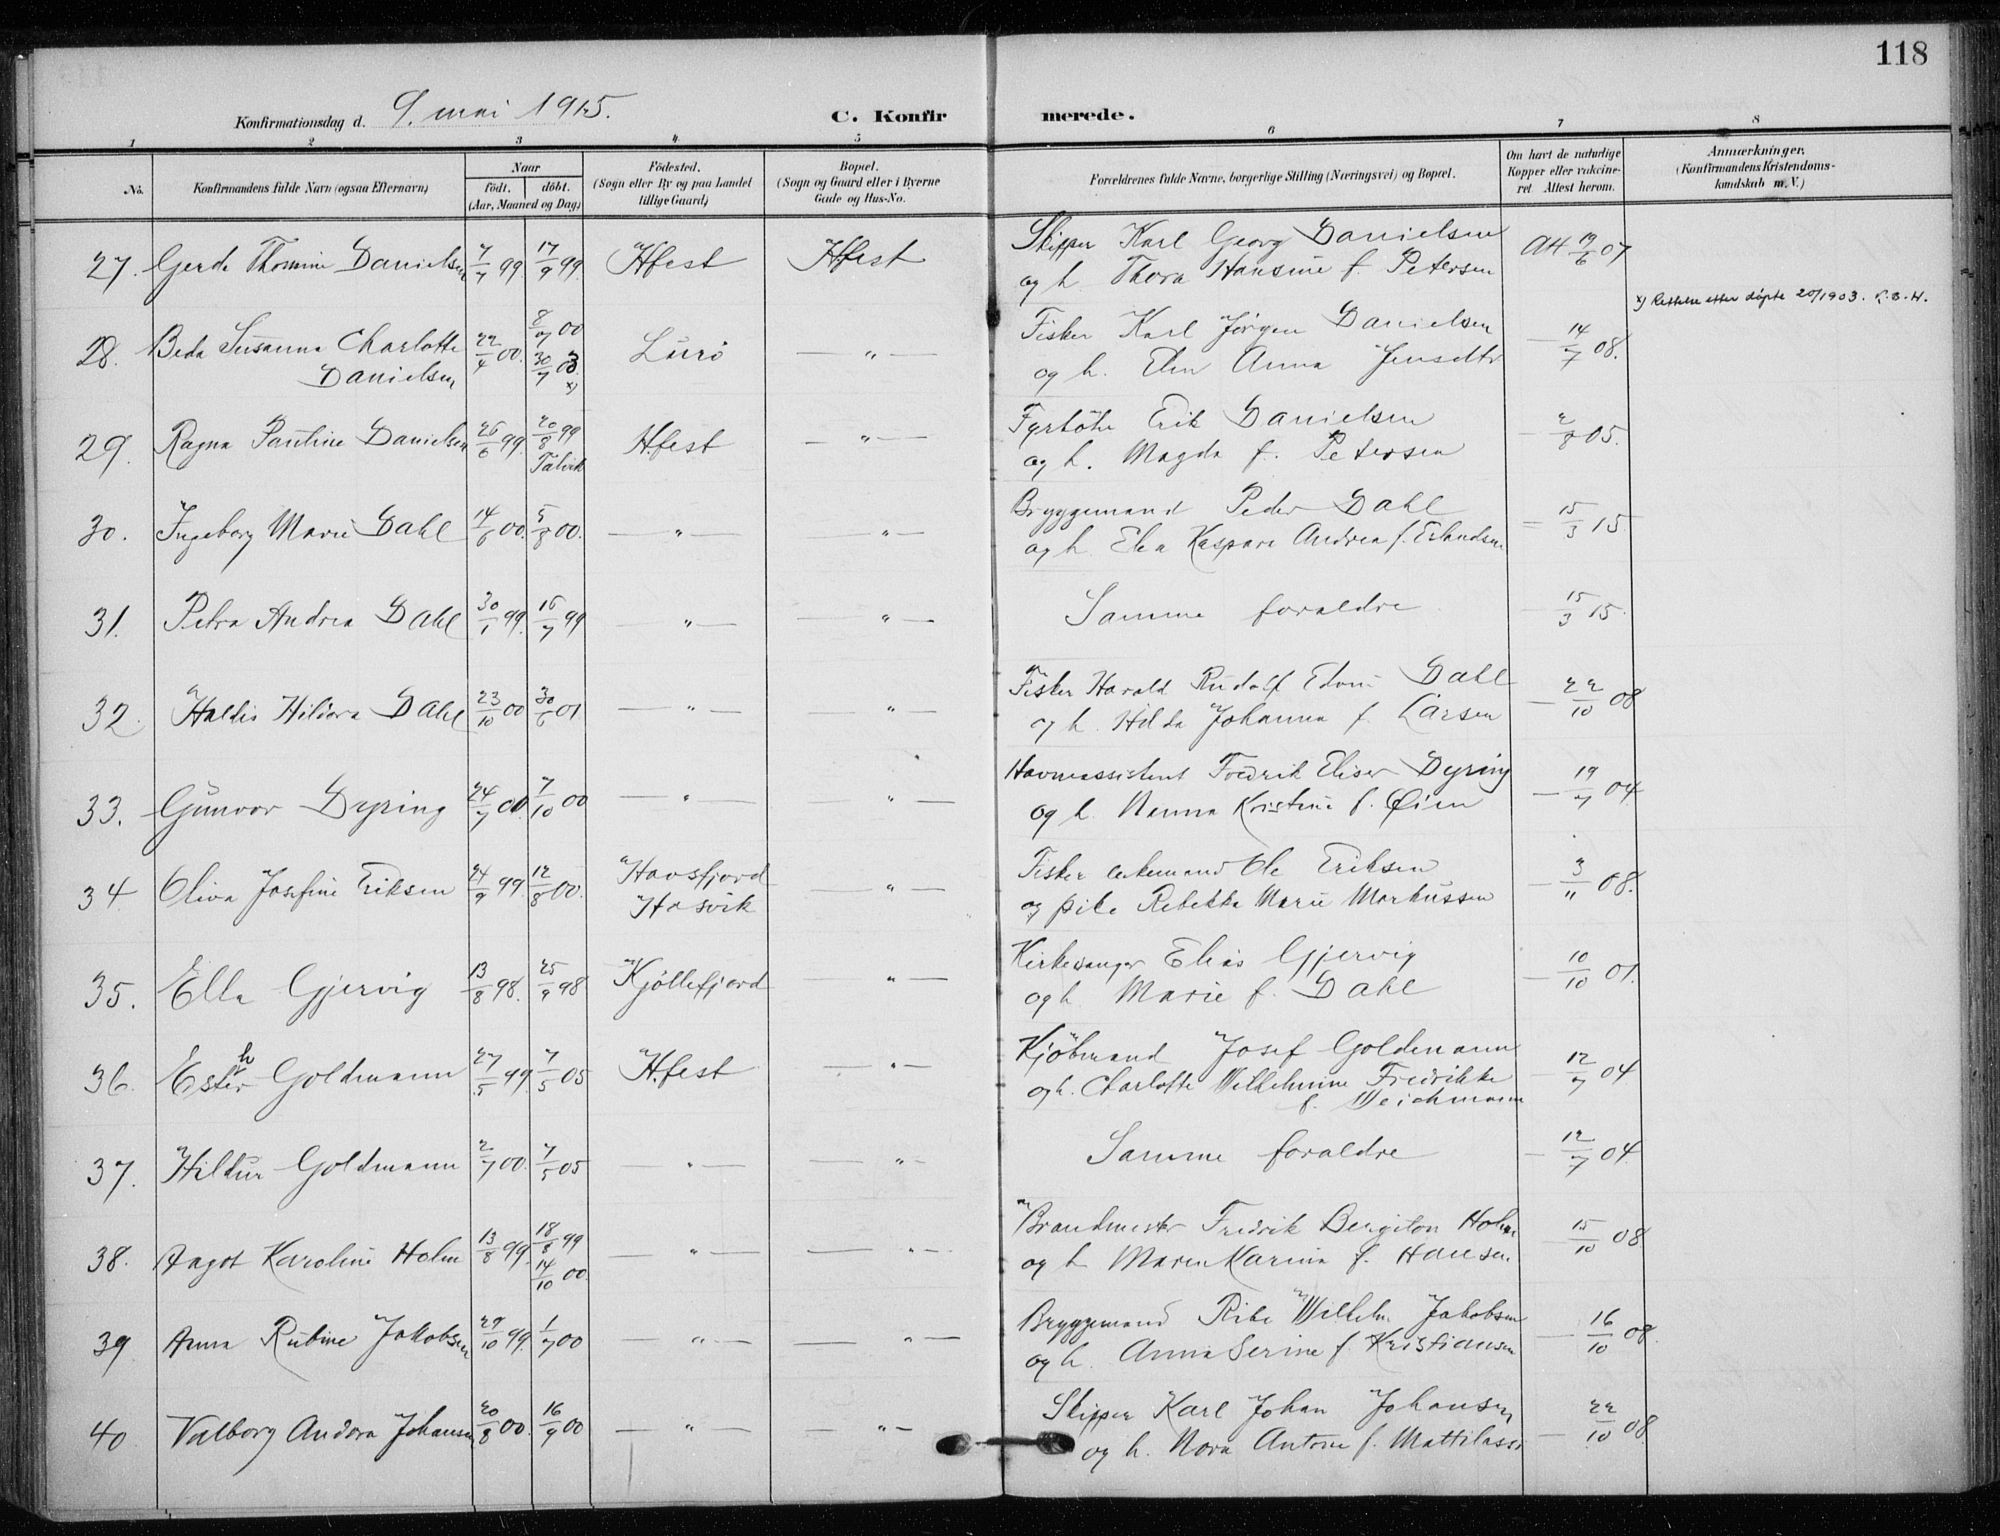 118
Konfirmationsdag d. 9. mai 1915.
C. Konfirmerede.
1 2 3 4 5 6 7 8
No.
Konfirmandens fulde Navn (ogsaa Efternavn)
Naar
födt. döbt.
(Aar, Maaned og Dag)
Födested.
(Sogn eller By og paa Landet
tillige Gaard)
Bopæl.
(Sogn og Gaard eller i Byerne
Gade og Hus-No.
Forældrenes fulde Navne, borgerlige Stilling (Næringsvei) og Bopæl.
Om havt de naturlige
Kopper eller vakcine-
ret Attest herom.
Anmærkninger.
(Konfirmandens Kristendoms-
kundskab m. V.)
27. Gerda Thomine Danielsen 7/7 99 17/9 99 Hfest Hfest
Skipper Karl Georg Danielsen
og h. Thora Hansine f. Petersen
AH 19/6 07
x) Rettelse etter döpte 20/1903. K.B.H.
28. Beda Susanna Charlotte
Danielsen
22/4 00. 8/7 00
30/7 03 x)
Lurö — " —
Fisker Karl Jörgen Danielsen
og h. Elen Anna Jensdtr
— 14/7 08.
29. Ragna Pauline Danielsen 26/6 99. 20/8 99
Talvik
H.fest — " —
Fyrböter Erik Danielsen
og h. Magda f. Petersen
— 2/8 05.
30. Ingeborg Marie Dahl 14/6 00. 5/8 00. — " — — " —
Bryggemand Peder Dahl
og h. Elea Kaspara Andrea f. Erlandsen
— 15/3 15
31. Petra Andrea Dahl 30/1 99. 16/7 99 — " — — " —
Samme foraldre
— 15/3 15.
32. Haldis Hildora Dahl 23/10 00 30/6 01 — " — — " —
Fisker Harald Rudolf Edvin Dahl
og h. Hilda Johanna f. Larsen
— 22/10 08
33. Gunvor Dyring 24/7 00. 7/10 00 — " — — " —
Havneassistent Fredrik Eliser Dyring
og h. Nanna Kristine f. Öien
— 19/7 04
34 Oliva Josefine Eriksen 24/9 99. 12/8 00.
Havsfjord
Hasvik
— " —
Fisker enkemand Ole Eriksen
og pike Rebekka Marie Markussen
— 3/11 08.
35. Ella Gjervig 13/8 98. 25/9 98 Kjöllefjord — " —
Kirkesanger Elias Gjervig
og h. Marie f. Dahl
— 10/10 01.
36. Esther Goldmann 27/5 99. 7/5 05 H.fest — " —
Kjöbmand Josef Goldmann
og h. Charlotte Wilhelmine Fredrikke
f. Weichmann
— 12/7 04
37. Hildur Goldmann 2/7 00. 7/5 05 " — — " —
Samme foraldre
— 12/7 04.
38. Aagot Karoline Holm 13/8 99. 18/8 99
14/10 00.
— " — — " —
Brandmester Fredrik Bergiton Holm
og h Maren Karina f. Hansen.
— 15/10 08
39 Anna Rubine Jakobsen 29/10 99. 1/7 00 — " — — " —
Bryggemand Wilhelm Jakobsen
og h. Anna Serine f. Kristiansen
— 16/10 08.
40. Valborg Andora Johansen 20/8 00. 16/9 00 — " — " —
Skipper Karl Johan Johansen
og h. Nora Antone f.
— 22/10 08